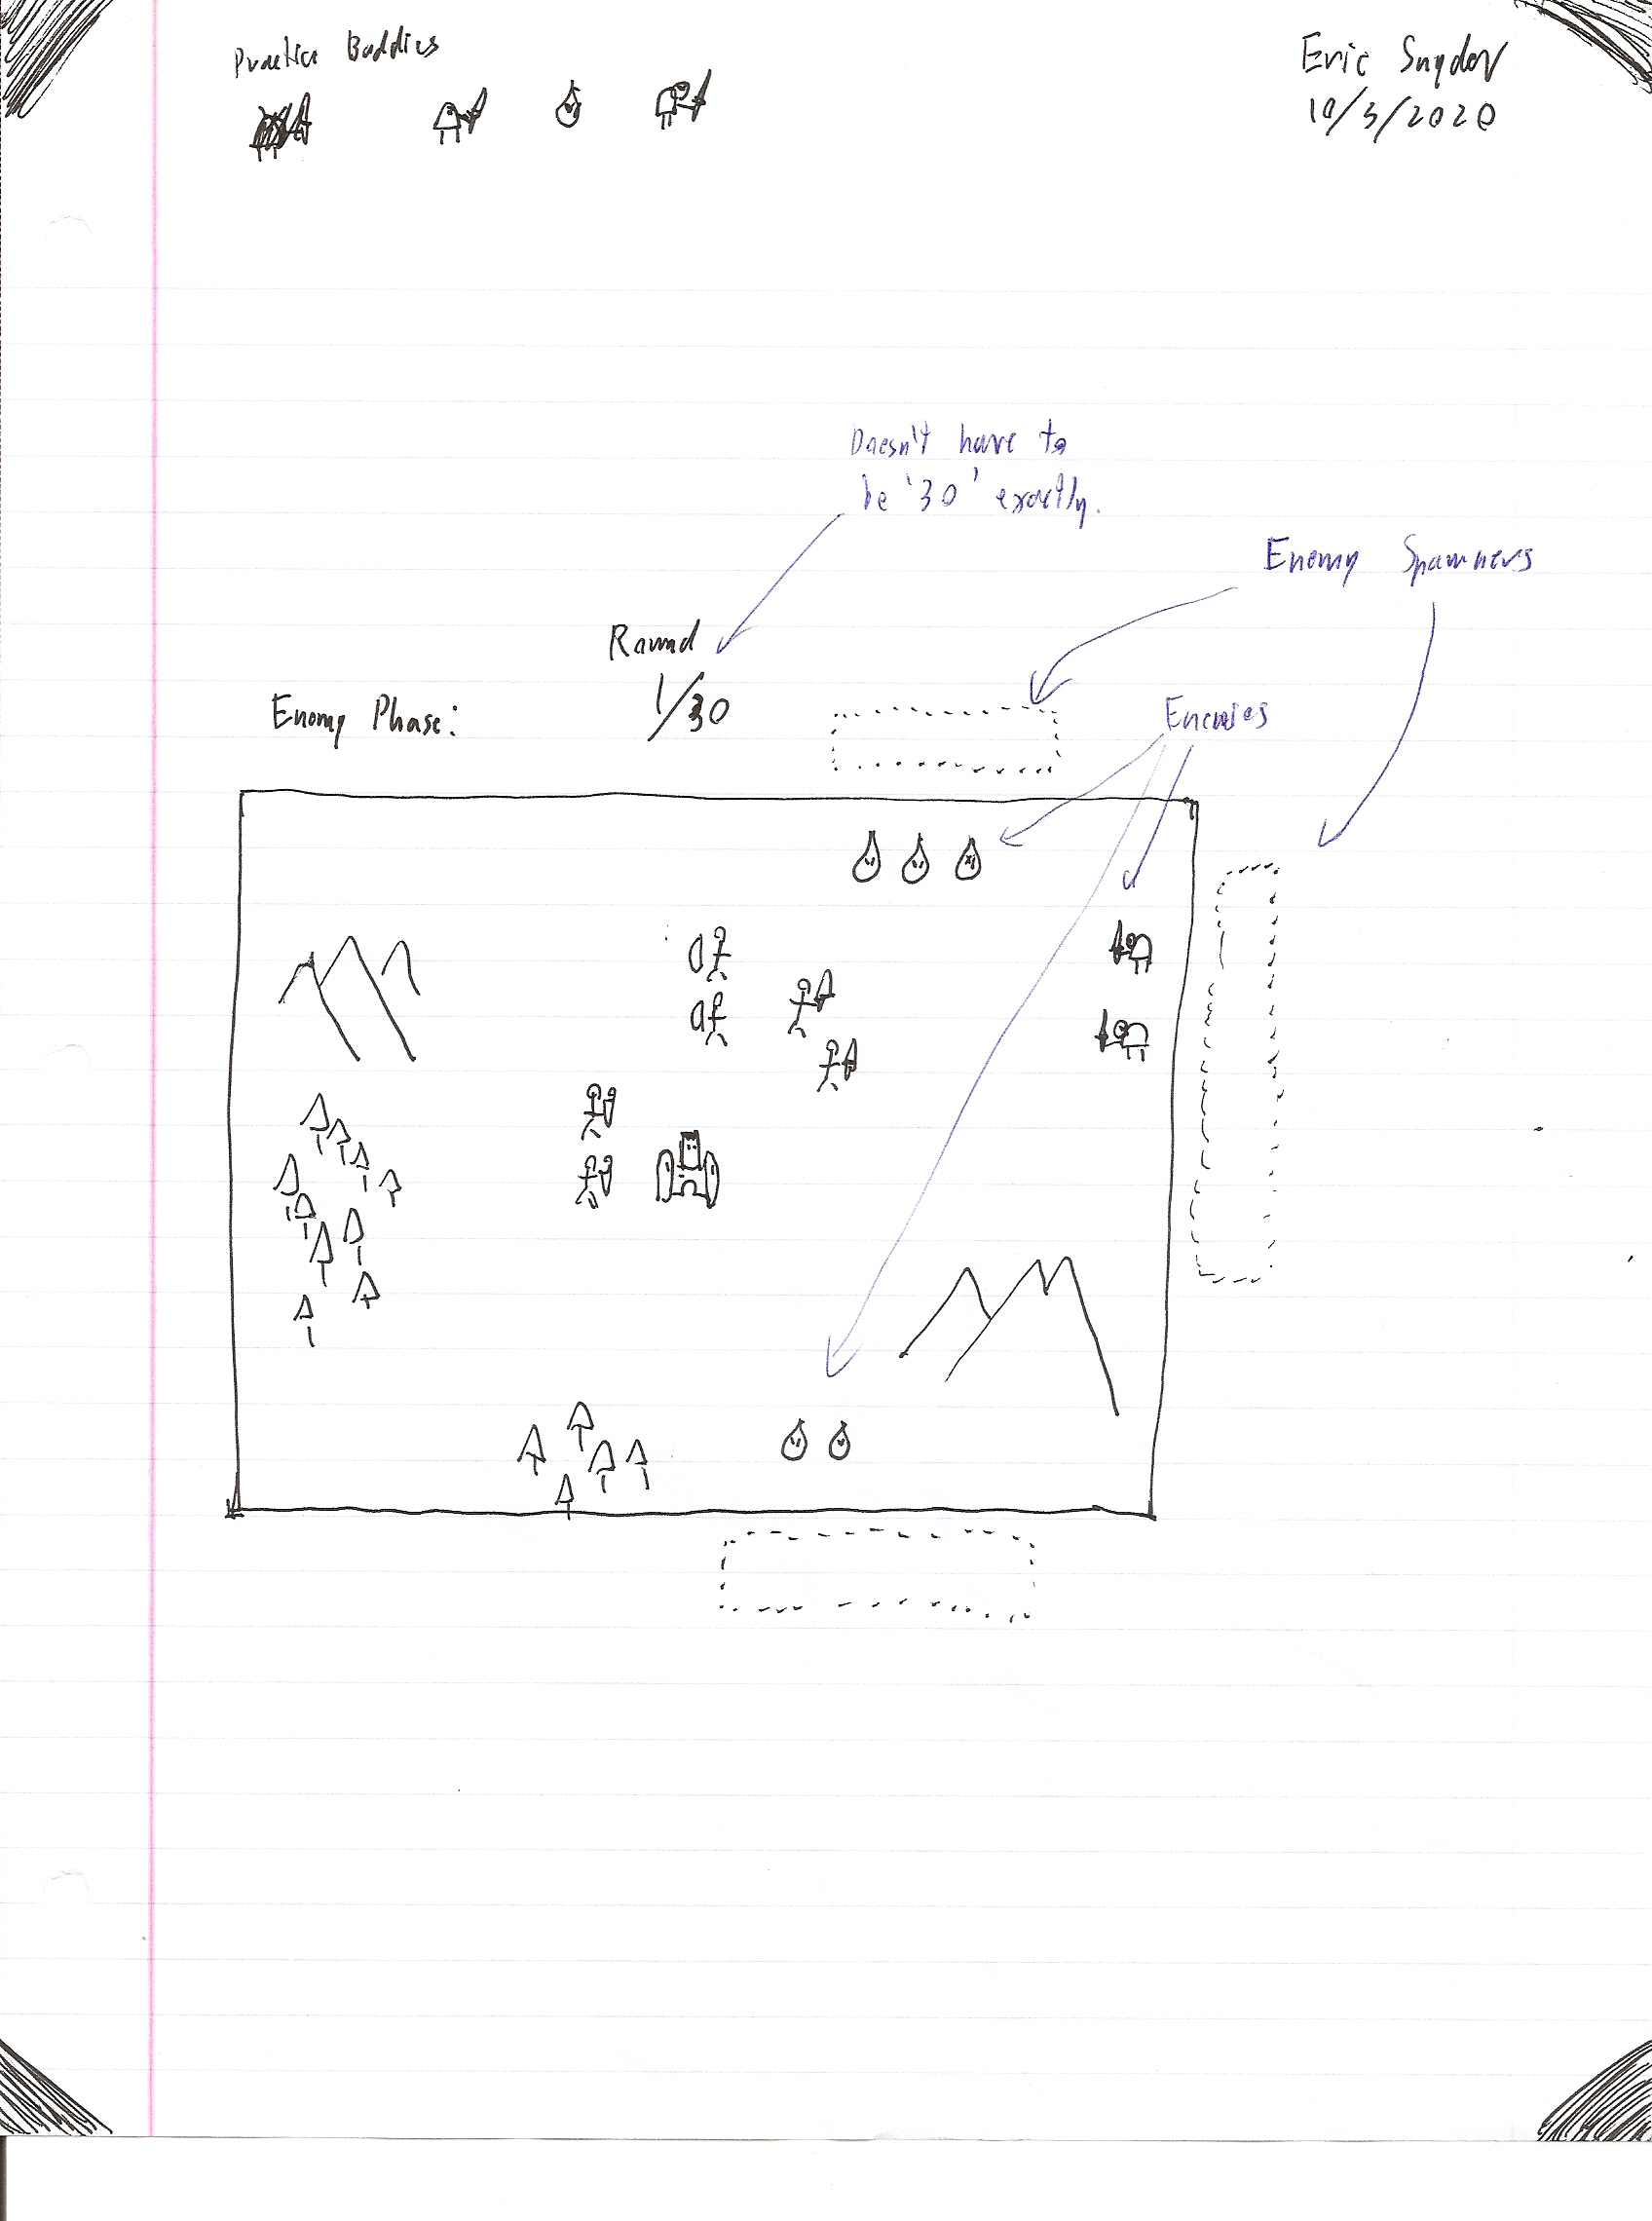 Practice Baddies
Eric Snyder
10/3/2020
Doesn't have to
be '30' exactly.
Enemy Spawners
Round
1/30
Enemy Phase:
Enemies